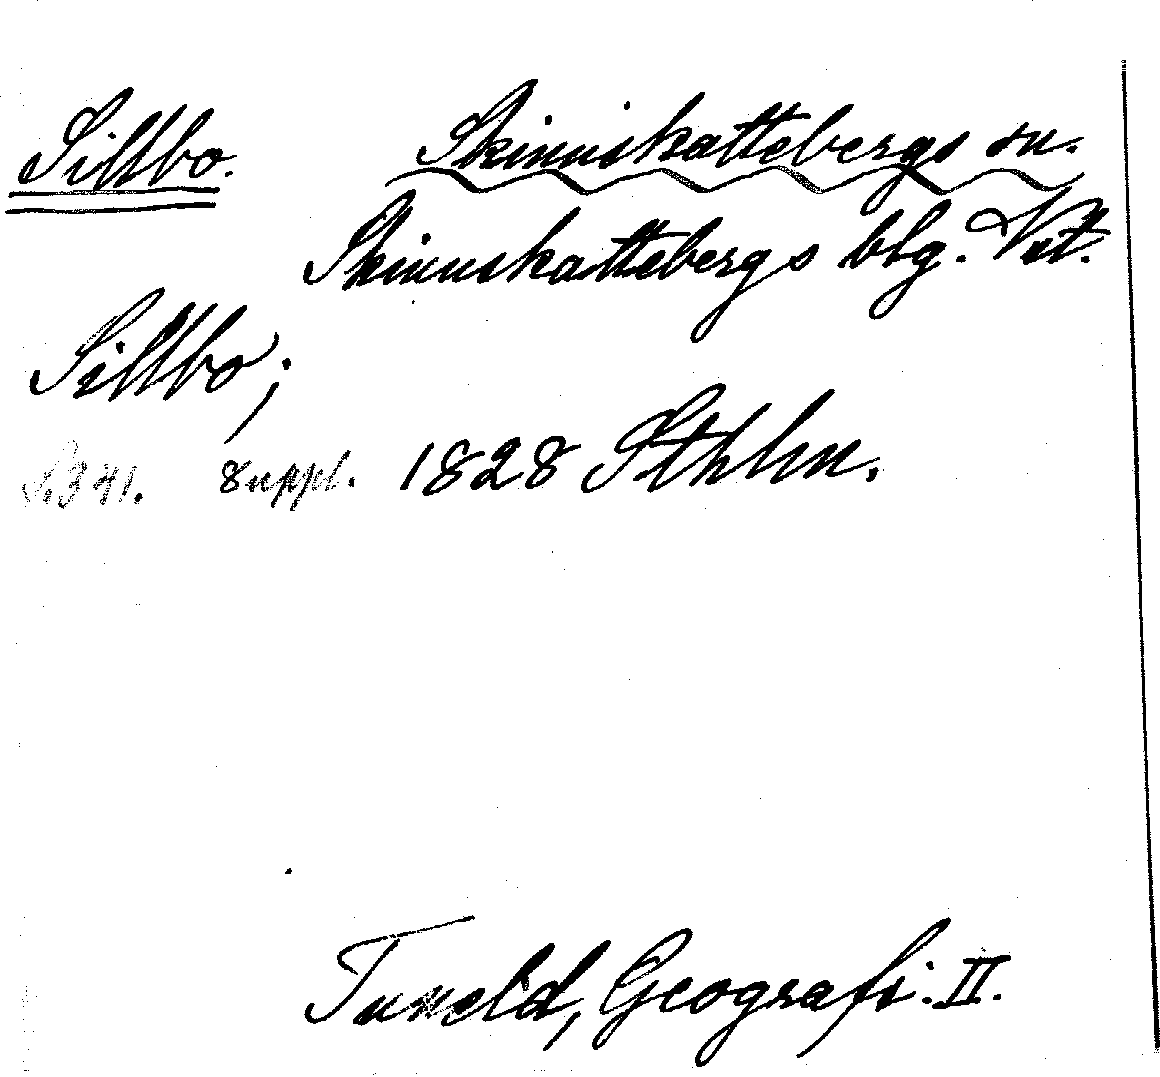 Sillbo. Skinnskattebergs sn.
Skinnskattebergs blg. Vst.
Sillbo;
S. 341. 8 uppl. 1828 Sthlm.
Tuneld, Geografi. II.